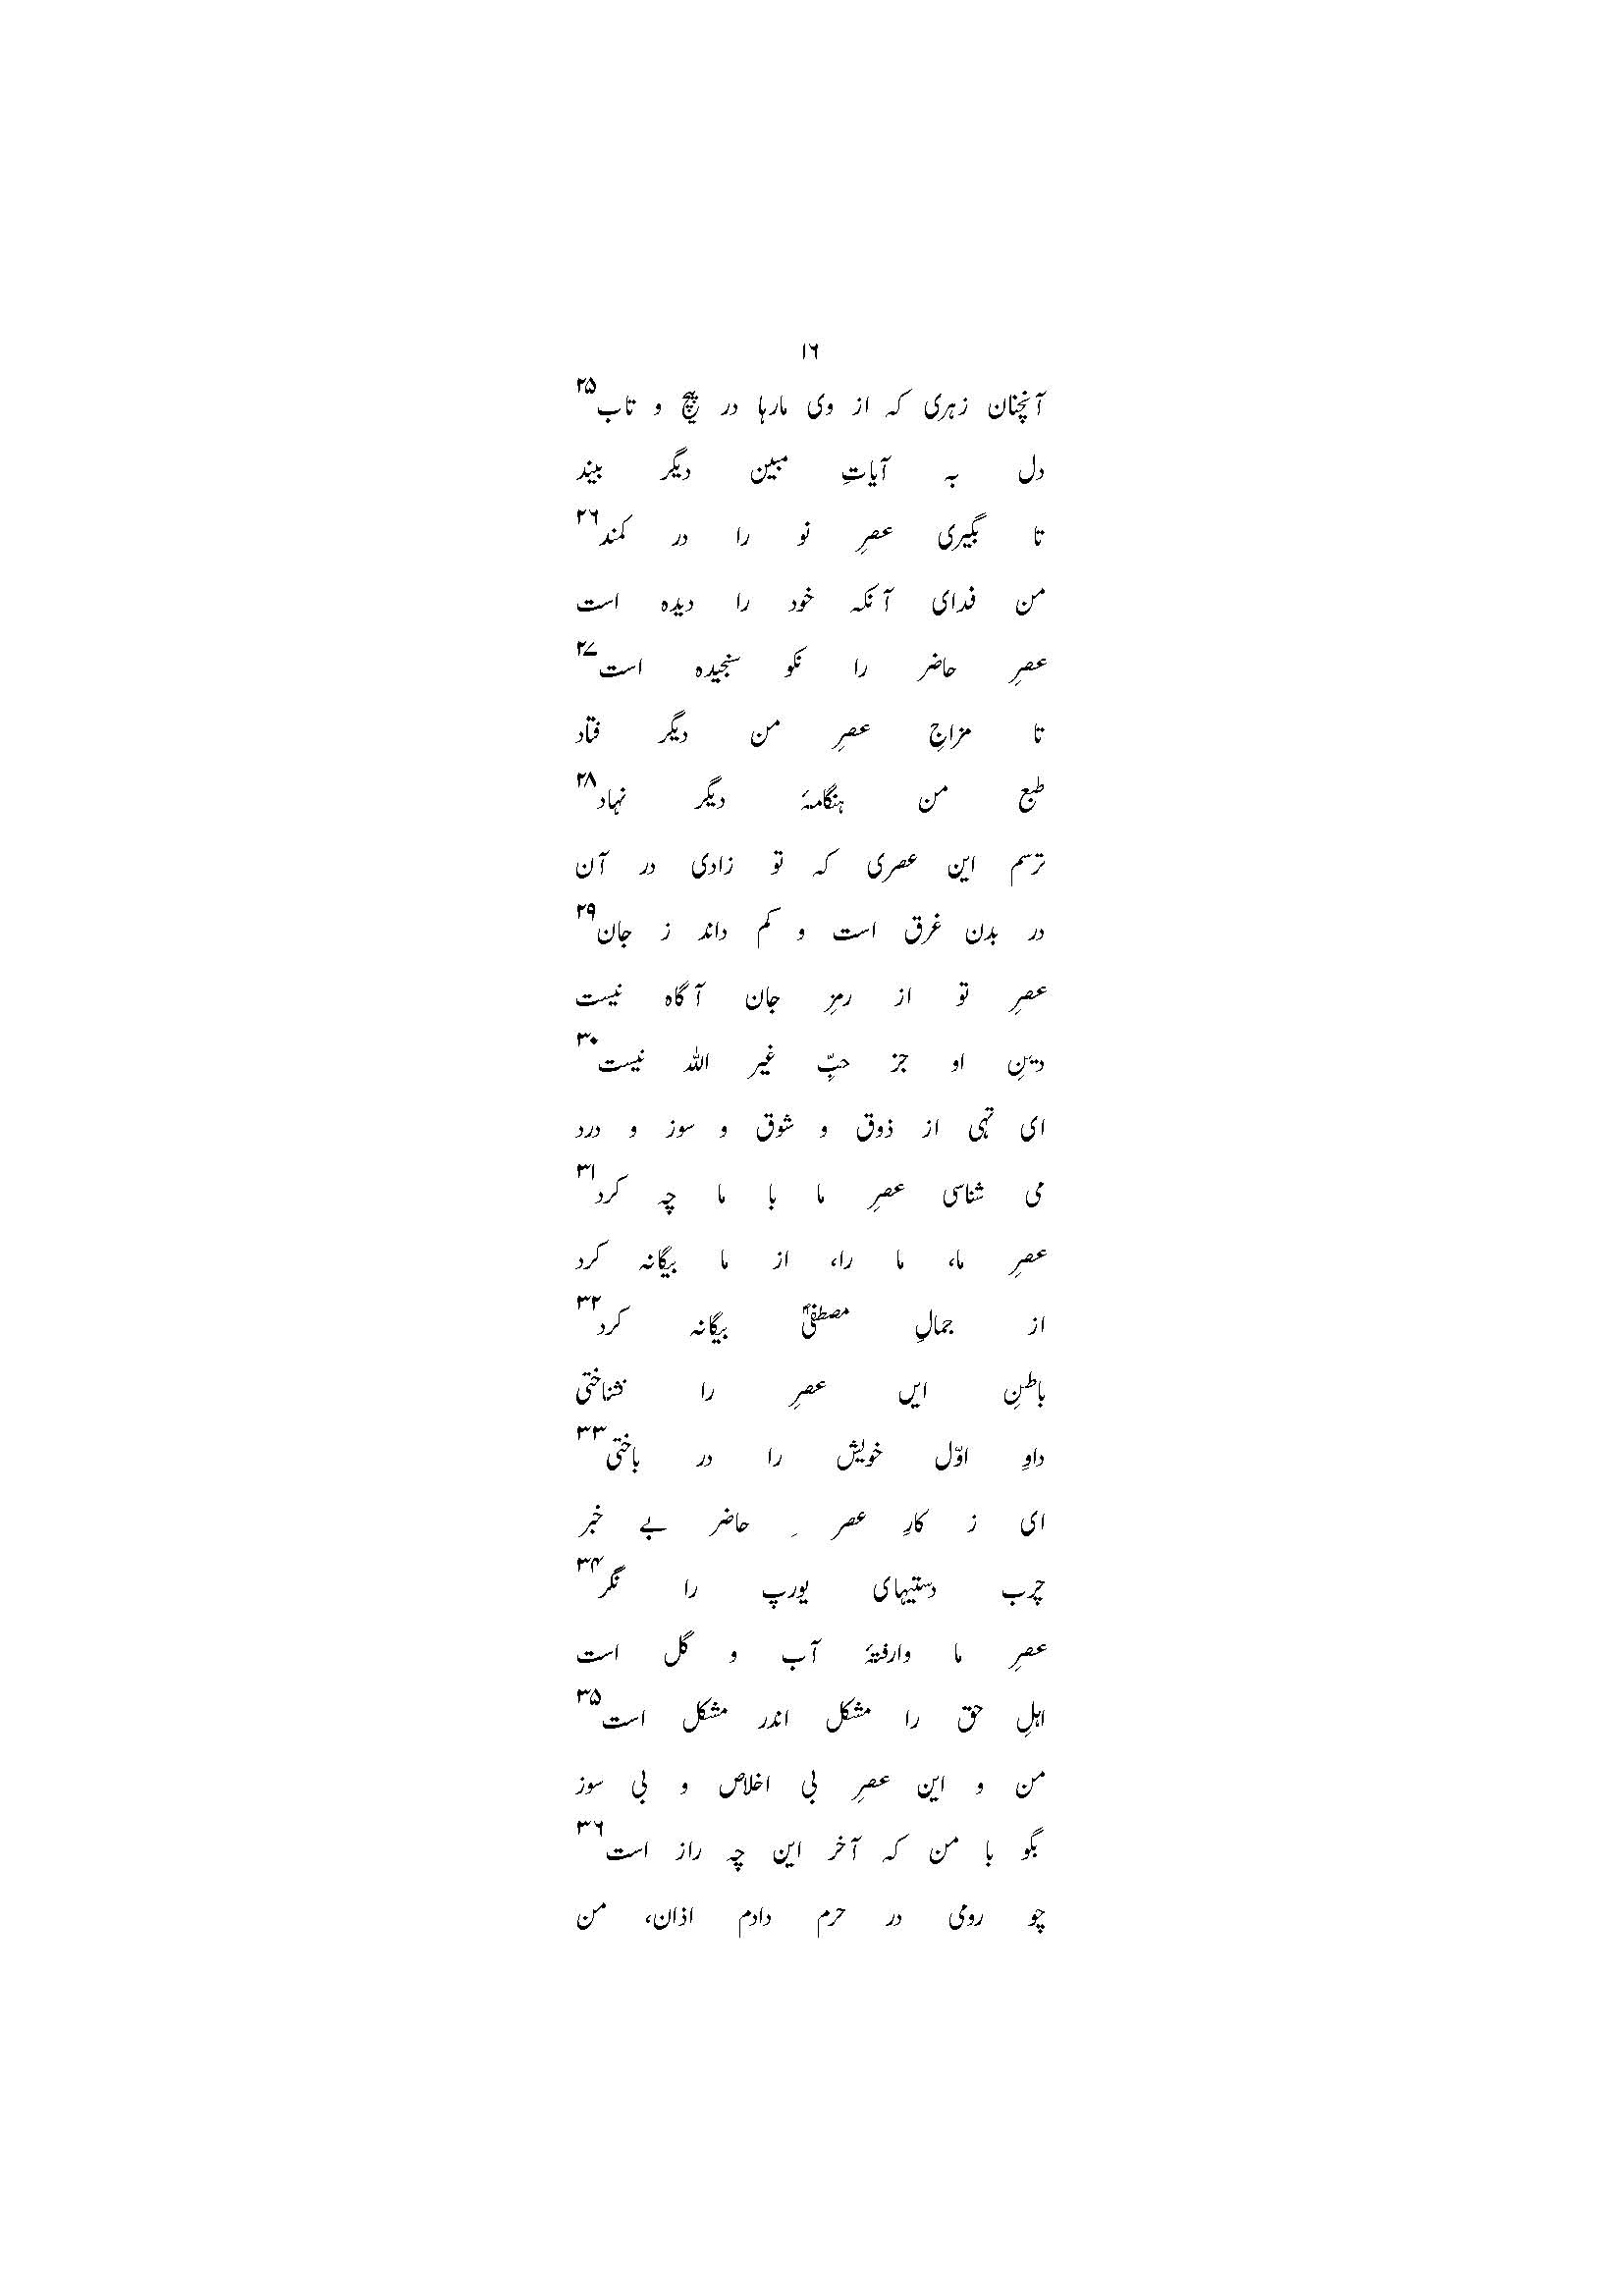 ۱۶
آنچنان زہری کہ از وی مارہا در پیچ و تاب۲۵
دل بہ آیاتِ مبین دیگر ببند
تا بگیری عصرِ نو را در کمند۲۶
من فدای آنکہ خود را دیدہ است
عصرِ حاضر را نکو سنجیدہ است۲۷
تا مزاجِ عصرِ من دیگر فتاد
طبع من ہنگامۂ دیگر نہاد۲۸
ترسم این عصری کہ تو زادی در آن
در بدن غرق است و کم داند ز جان۲۹
عصرِ تو از رمزِ جان آگاہ نیست
دینِ او جز حبِّ غیر اللہ نیست۳۰
ای تہی از ذوق و شوق و سوز و درد
می شناسی عصرِ ما با ما چہ کرد۳۱
عصرِ ما، ما را، از ما بیگانہ کرد
از جمالِ مصطفیؐ بیگانہ کرد۳۲
باطنِ ایں عصرِ را نشناختی
داوِ اوّل خویش را در باختی۳۳
ای ز کارِ عصر ِ حاضر بے خبر
چرب دستیہای یورپ را نگر۳۴
عصرِ ما وارفتۂ آب و گل است
اہلِ حق را مشکل اندر مشکل است۳۵
من و این عصرِ بی اخلاص و بی سوز
بگو با من کہ آخر این چہ راز است۳۶
چو رومی در حرم دادم اذان، من